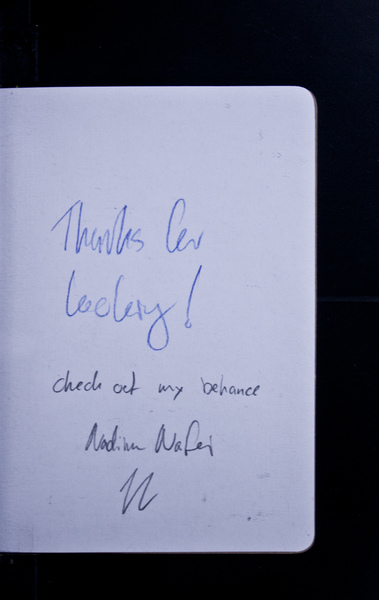 Thanks for
looking!
check out my behance
Nadine